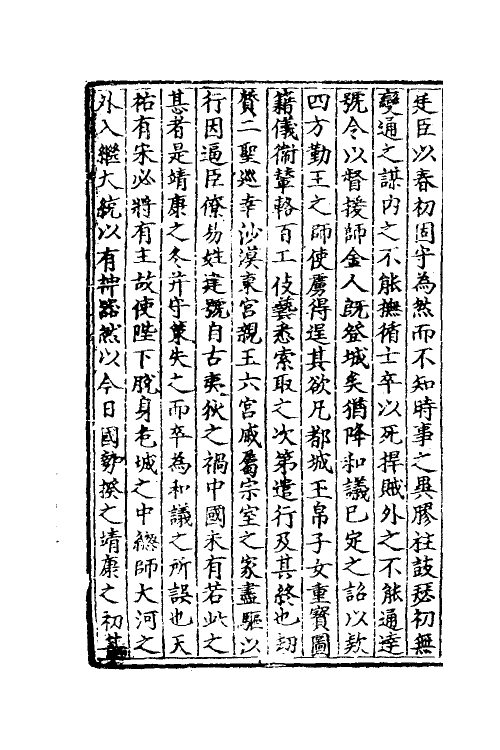 廷臣以春初固守為然而不知時事之異膠柱鼓瑟初無
變通之謀内之不能撫循士卒以死捍賊外之不能通達
號令以督援師金人既登城矣猶降和議已定之詔以欵
四方勤王之師使厲得逞其欲凡都城玉帛子女重寳圖
籍儀衛輦輅百工伎藝悉索取之次第遣行及其終也刧
質二聖廵幸沙漠東宫親王六宫戚屬宗室之家盡驅以
行因逼臣僚易姓建號自古夷狄之禍中國未有若此之
甚者是靖康之冬并守策失之而卒為和議之所誤也天
祐有宋必將有主故使陛下脱身危城之中總師大河之
外入繼大統以有神器然以今日國勢揆之靖康之初其